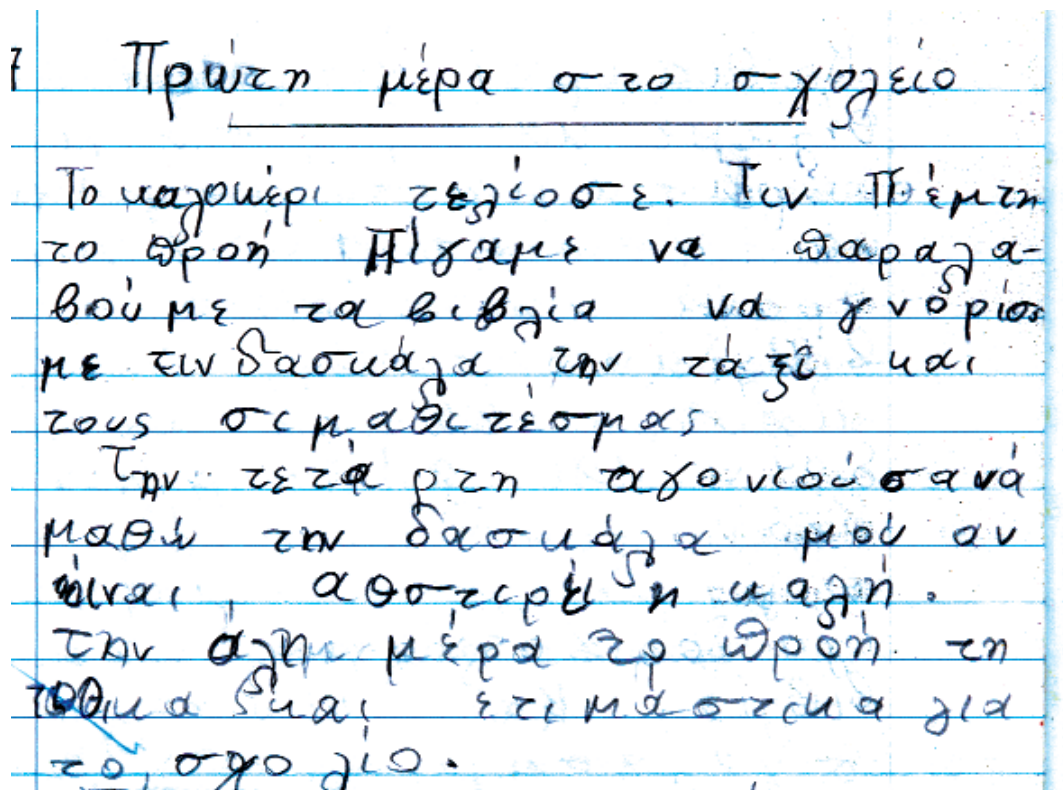 Πρώτη μέρα στο σχολείο
Το καλοκέρι τελίοσε. Τιν Πέμτη
το προή Πίγαμε να παραλα-
βούμε τα βιβλία να γνορίσο
με τιν δασκάλα την τάξι και
τους σιμαθιτέσμας
Την τετάρτη αγονιούσα νά
μαθώ την δασκάλα μού αν
είναι αθστιρή η καλή.
την άλη μέρα το προή τη
και ετιμάστικα για
το σχολίο.